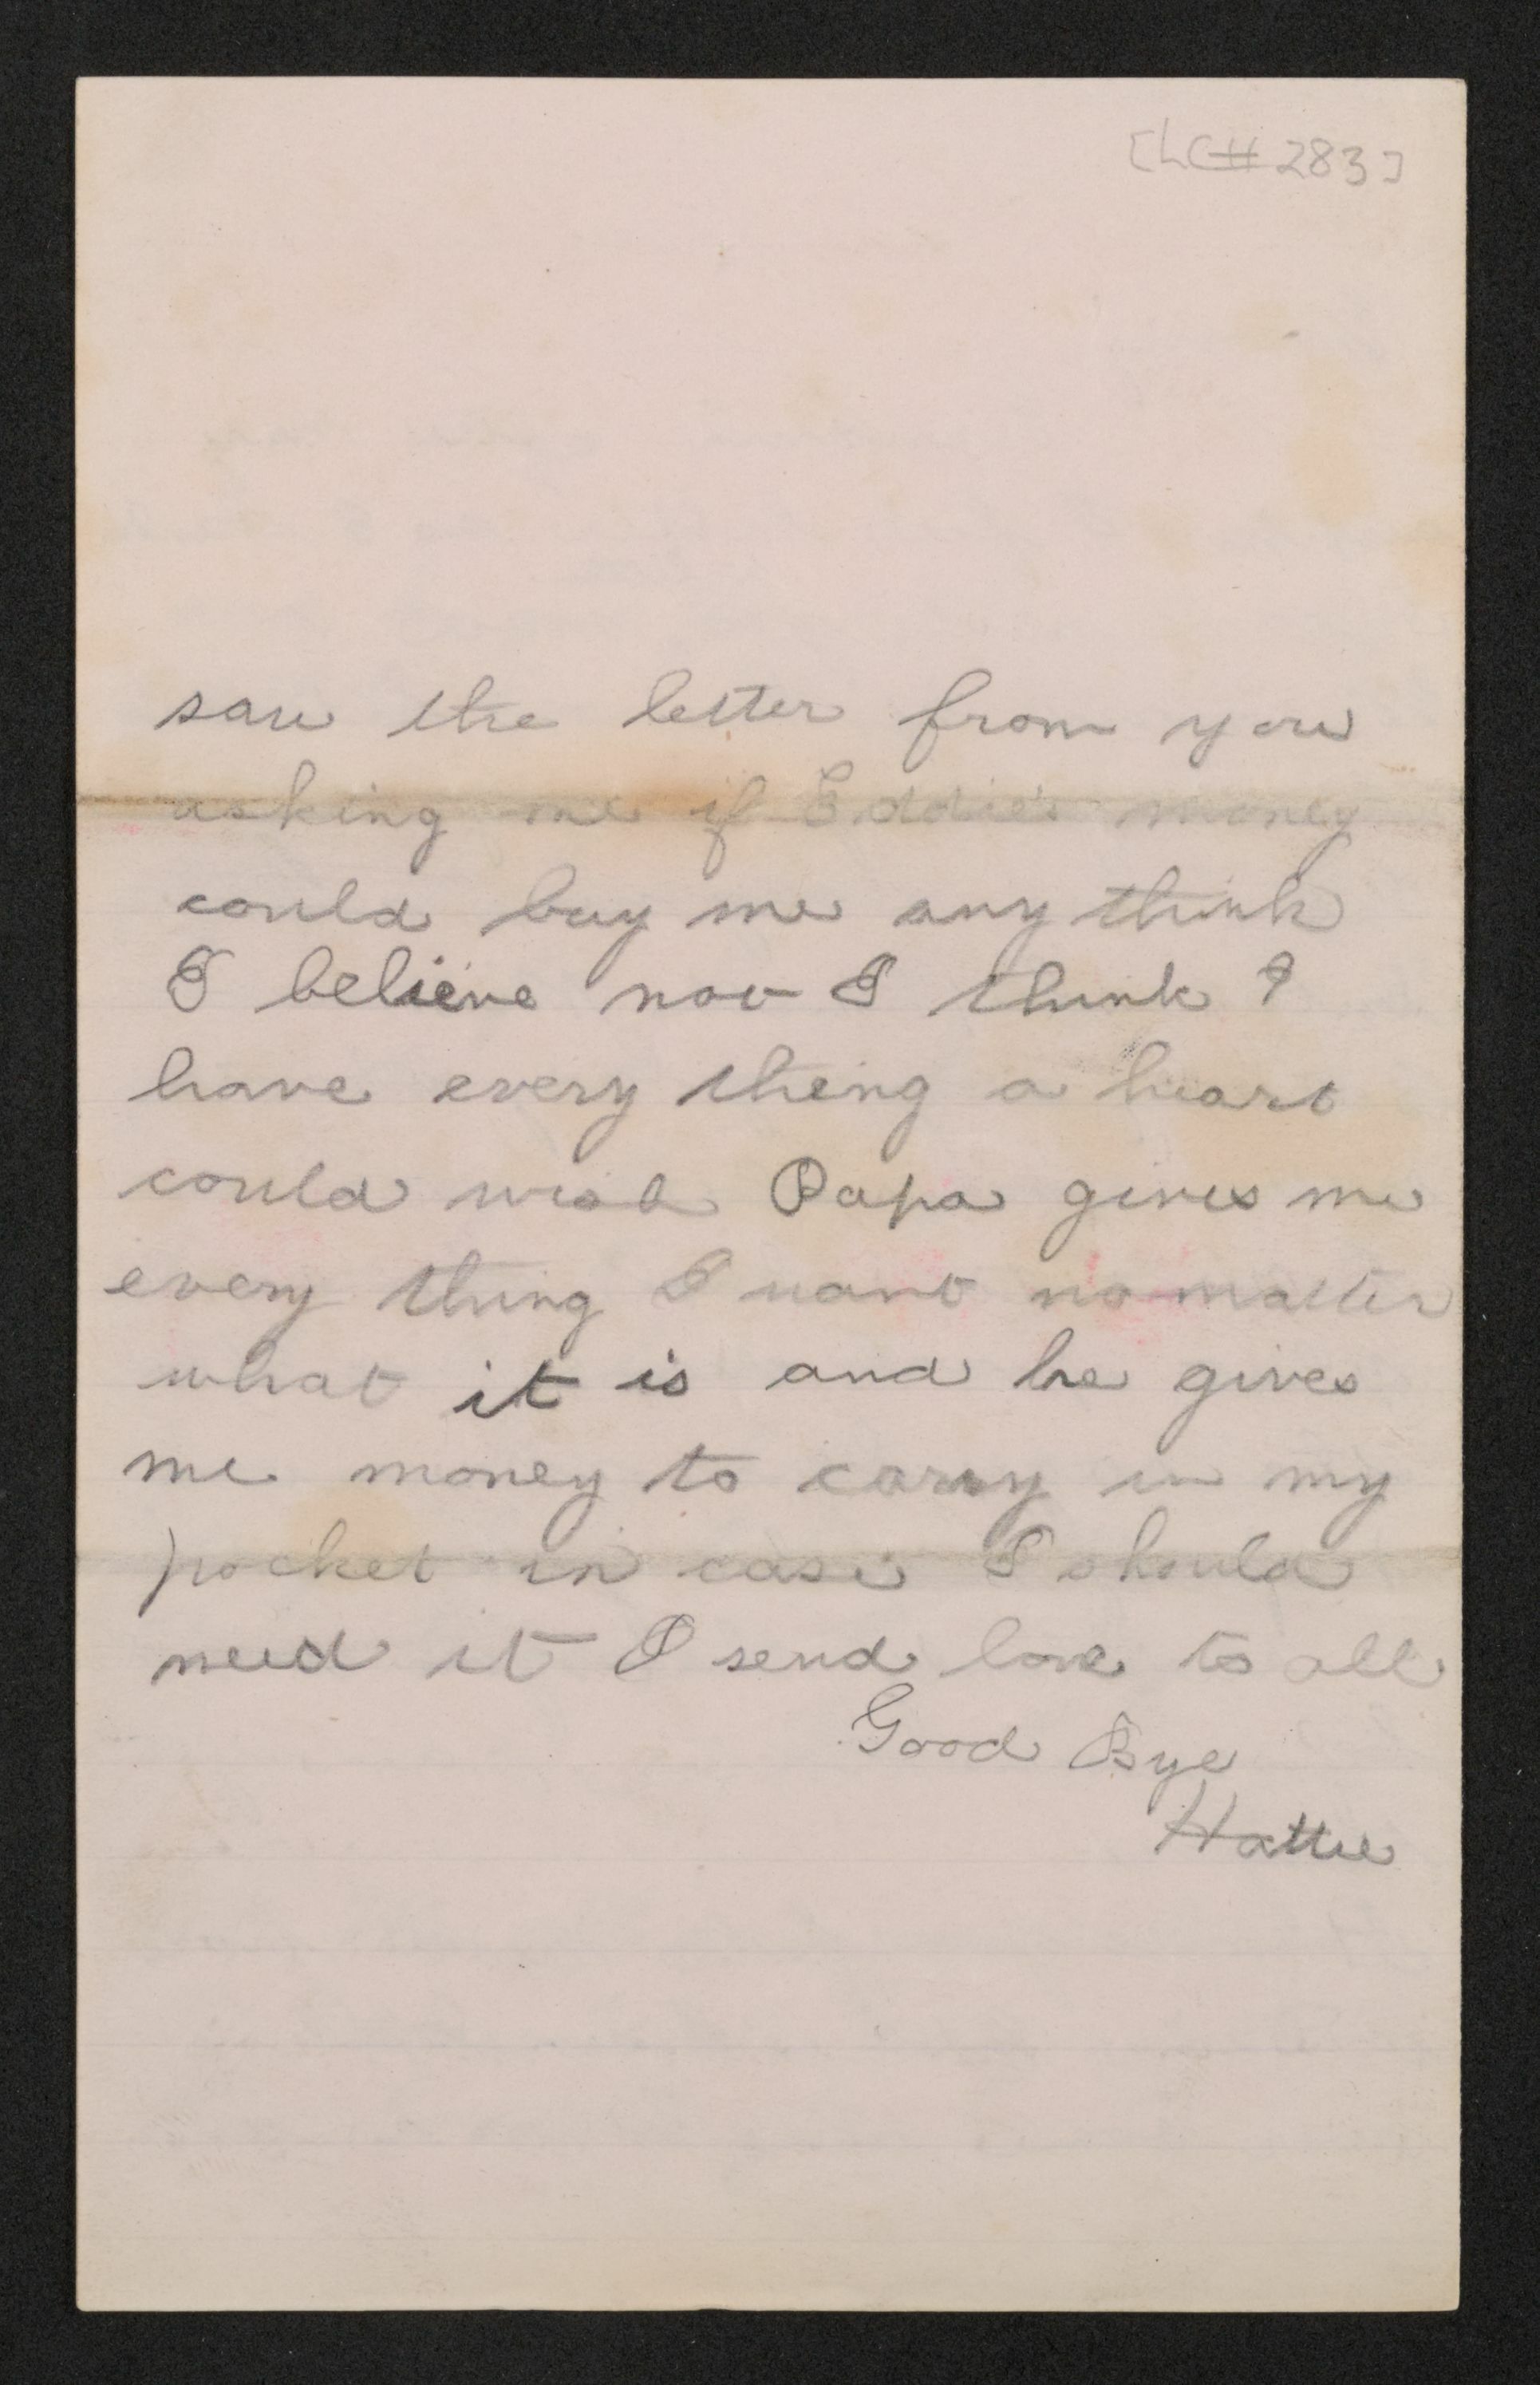 [LC# 283]
saw the letter from you
asking me if Eddie's money
could buy me any think
I believe not I think I
have every thing a heart
could wish Papa gives me
every thing I want no matter
what it is and he gives
me money to carry in my
pocket in case I should
need it I send love to all
Good Bye
Hattie